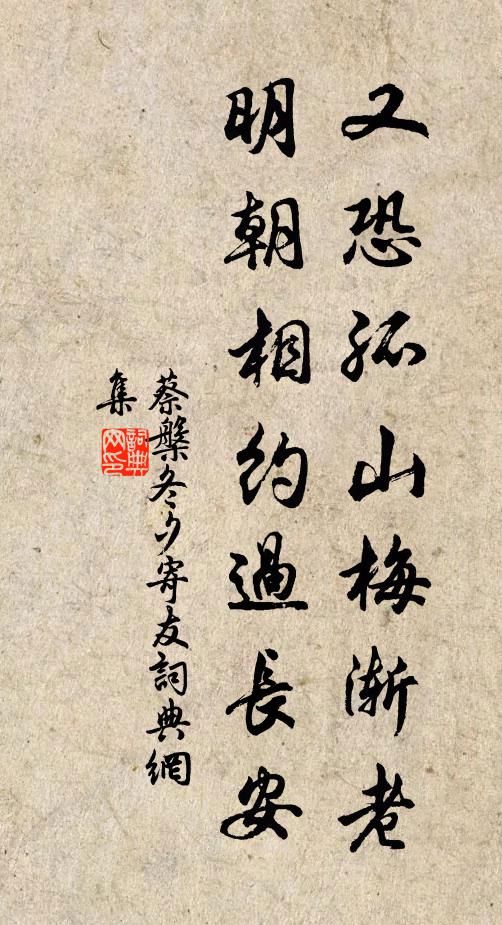 又恐孤山梅漸老
明朝相約過長安
蔡槃冬夕寄友詞典網
集
詞典網印